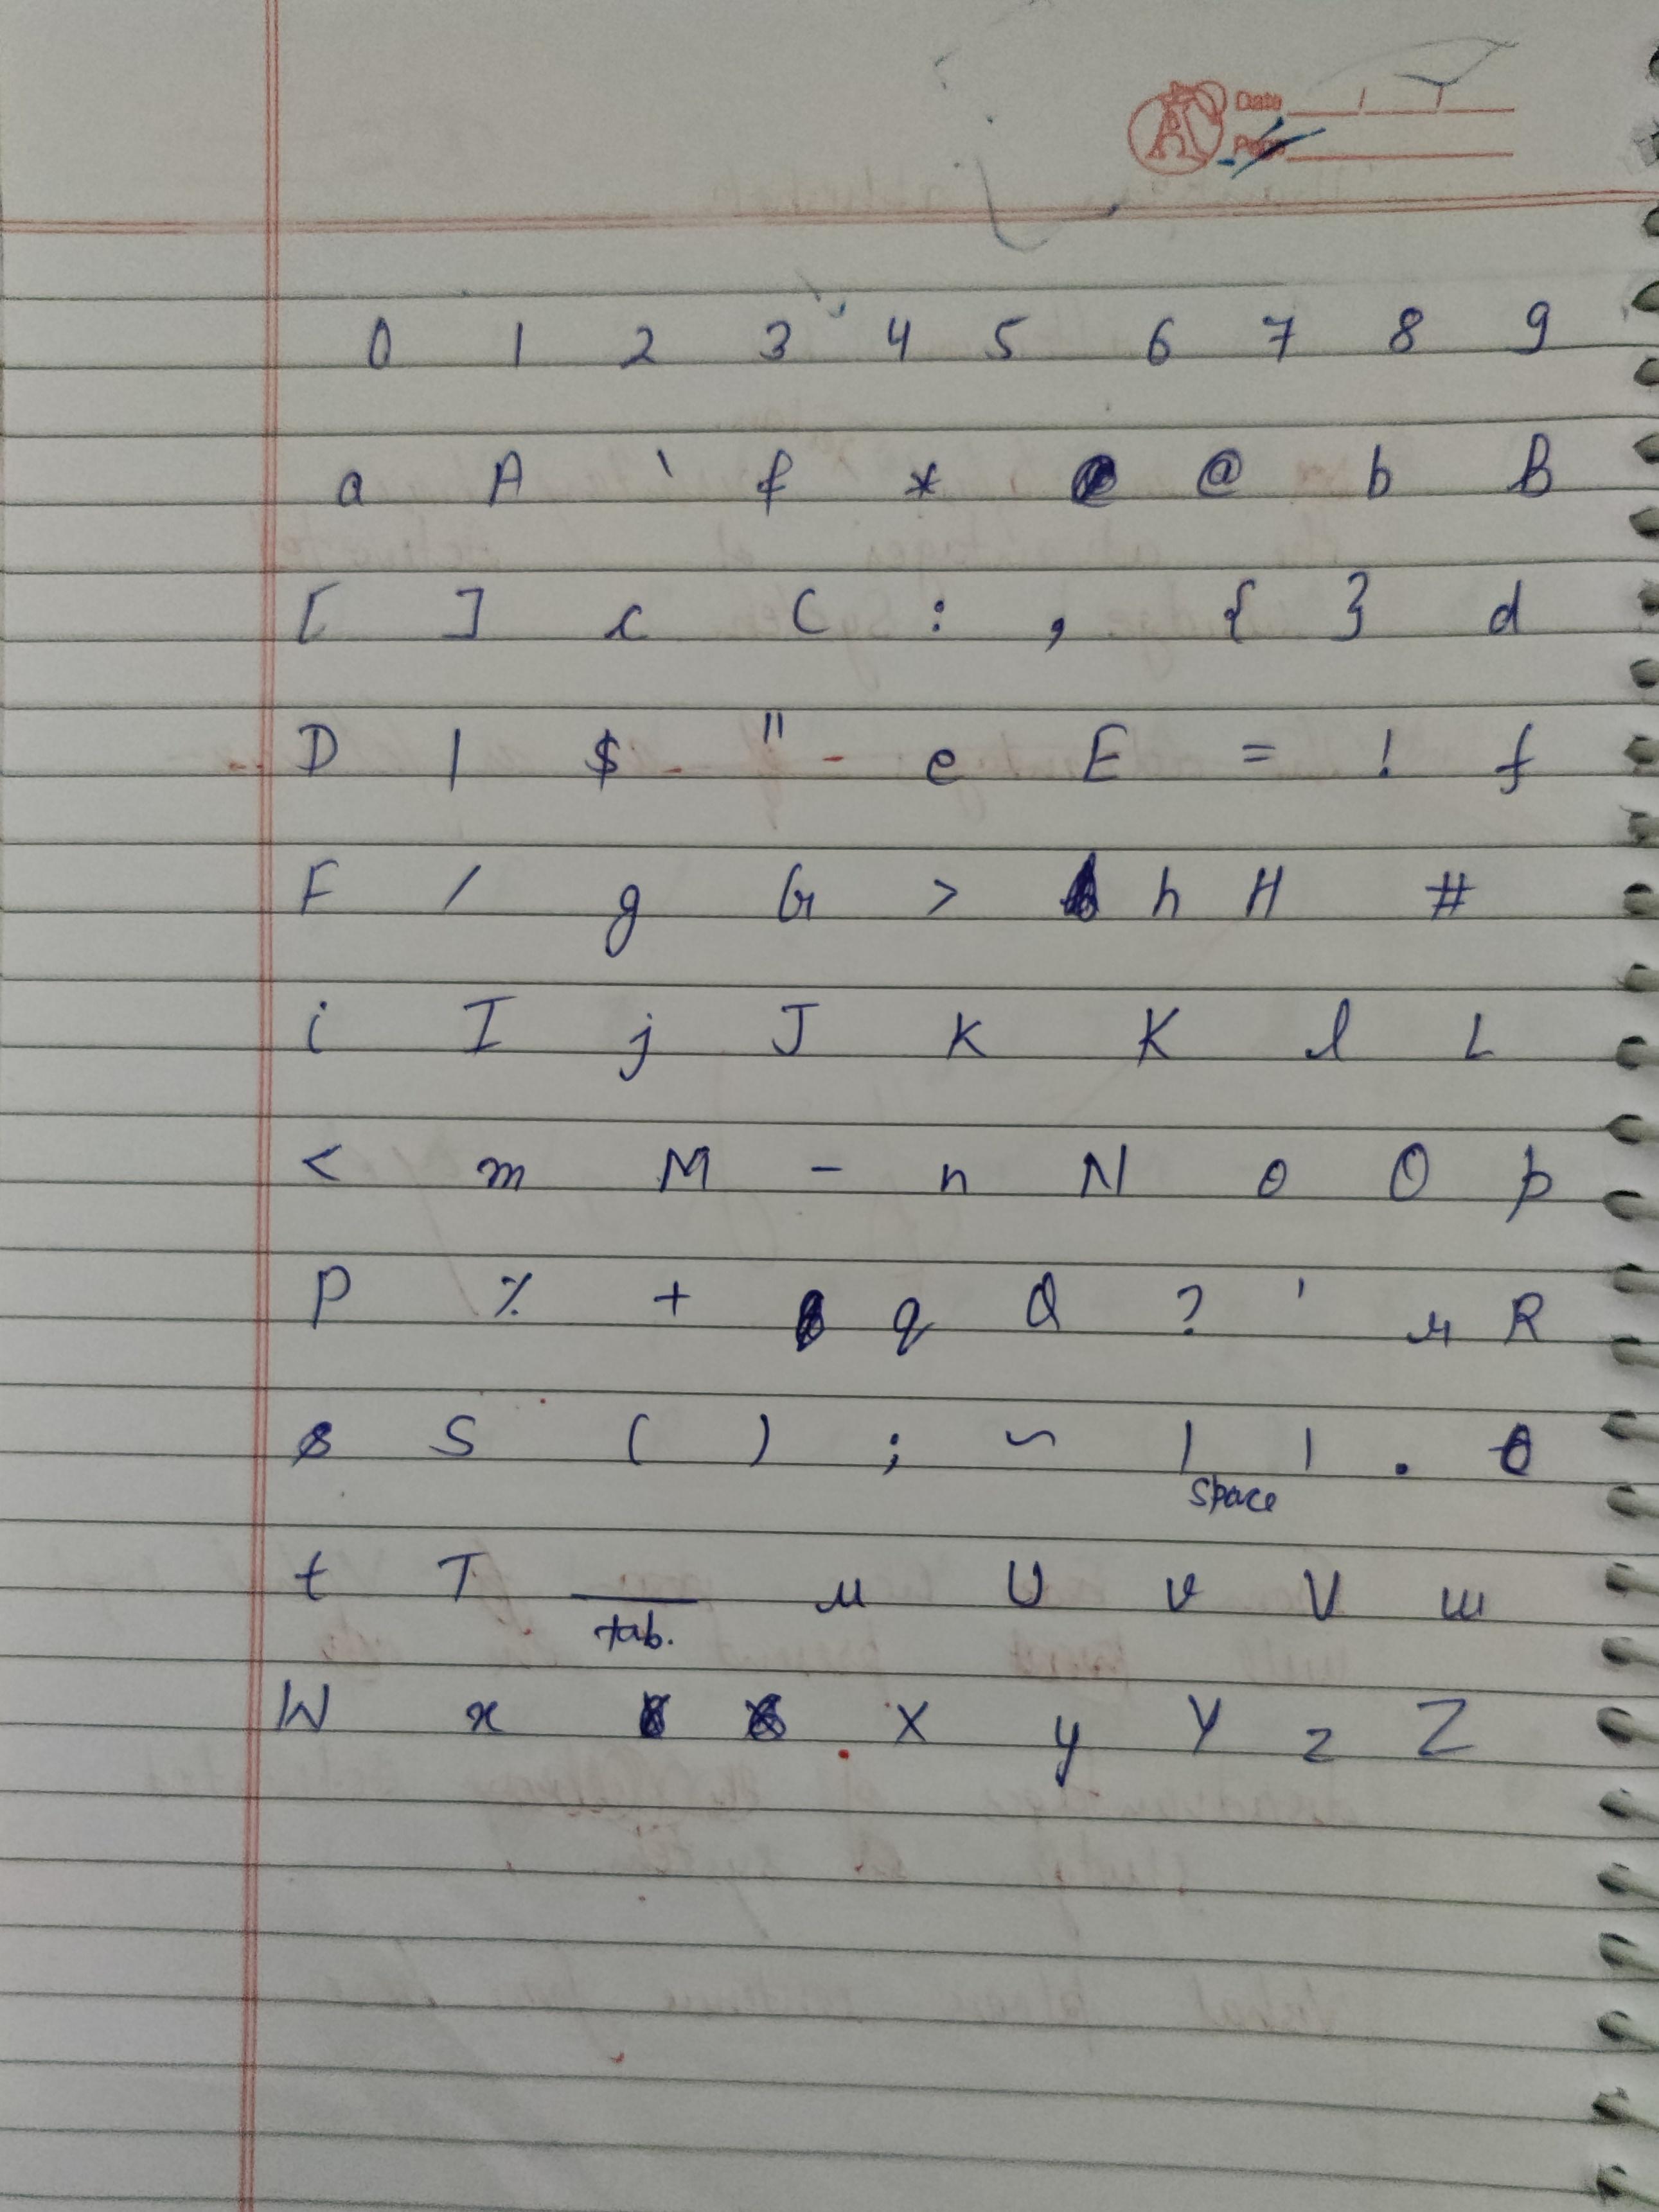 Date
Page
0 1 2 3 4 5 6 7 8 9
a A ` f * @ b B
[ ] c C : , { } d
D | $ " e E = ! f
F / g G > h H #
i I j J k K l L
< m M - n N o O p
P % + q Q ? ' r R
s S ( ) ; ~ | | .
space
t T ___ u U v V w
tab.
W x X y Y z Z